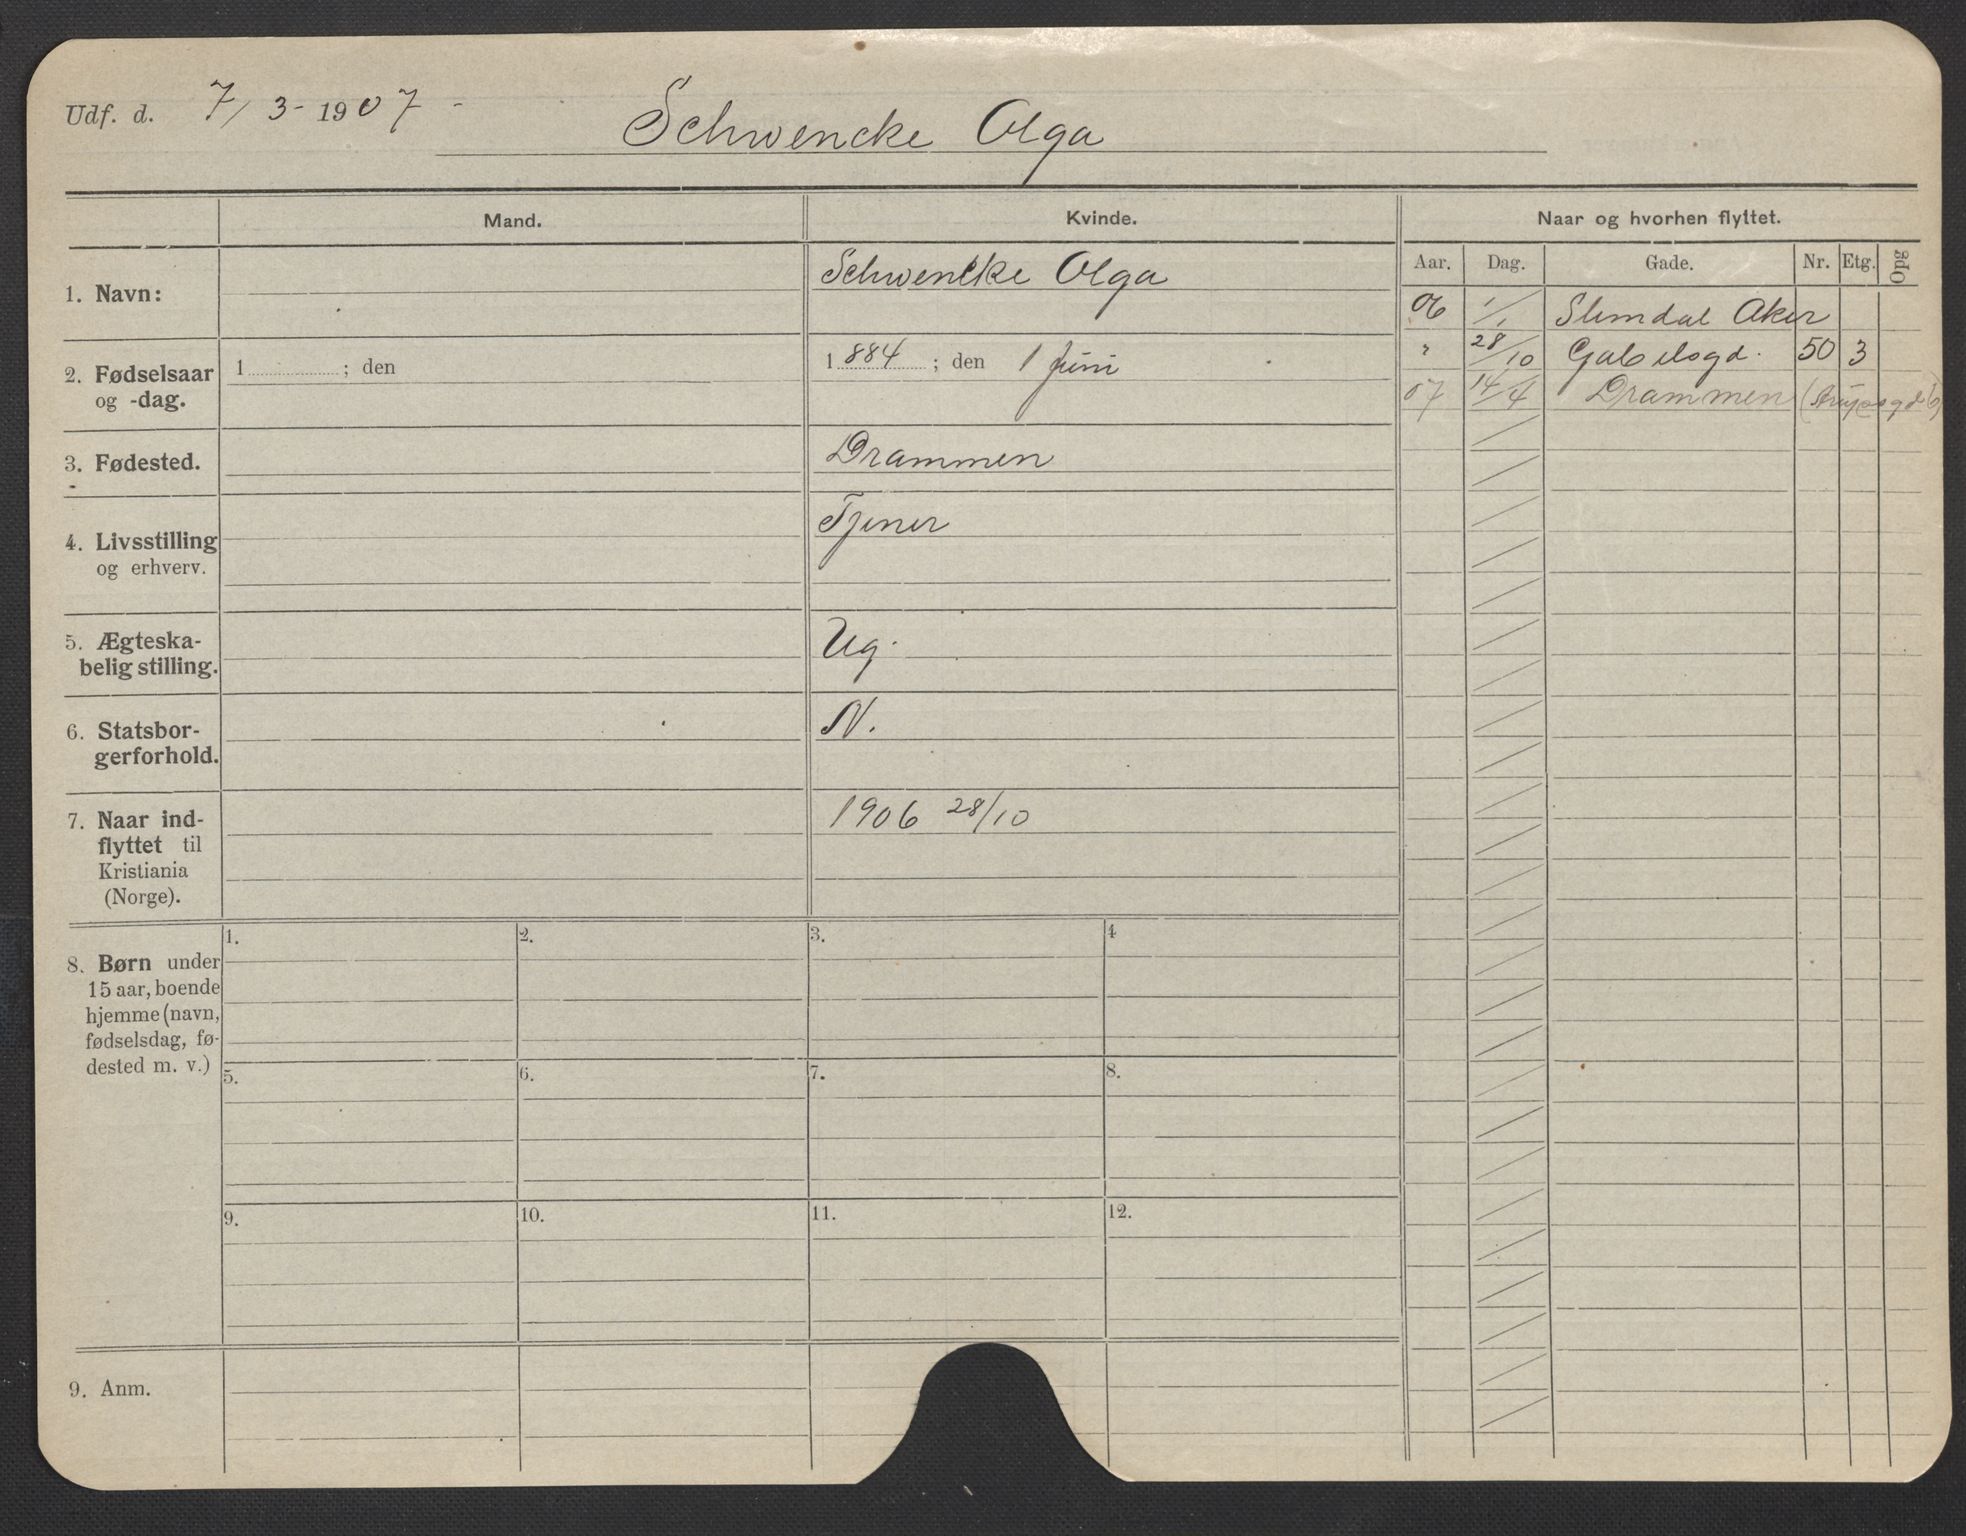 Udf. d. 7/3-1907-
Schwencke Olga
Mand.
Kvinde.
Naar og hvorhen flyttet.
Aar. Dag. Gade. Nr. Etg. Opg
1. Navn:
Schwencke Olga
06 1/1 Slemdal Aker
" 28/10 Gabelsgd. 50 3
07 14/4 Drammen
2. Fødselsaar
og -dag.
1 ; den
1884 ; den 1 Juni
3. Fødested.
Drammen
4. Livsstilling
og erhverv.
Tjener
5. Ægteska-
belig stilling.
Ug.
6. Statsbor-
gerforhold.
N.
7. Naar ind-
flyttet til
Kristiania
(Norge).
1906 28/10
8. Børn under
15 aar, boende
hjemme (navn,
fødselsdag, fø-
dested m. v.)
1. 2. 3. 4
5. 6. 7. 8.
9. 10. 11. 12.
9. Anm.